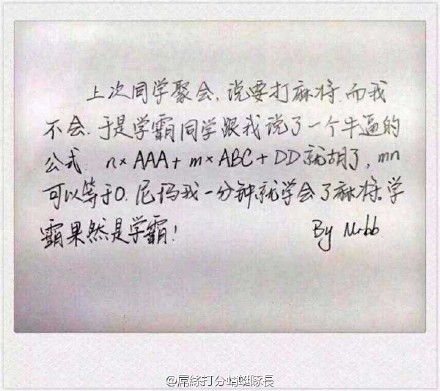 上次同学聚会，说要打麻将，而我
不会，于是学霸同学跟我说了一个牛逼的
公式：n×AAA+m×ABC+DD就胡了，mn
可以等于0。尼玛我一分钟就学会了麻将，学
霸果然是学霸！ By Mrbb
@屌絲打分蜻蜓隊長